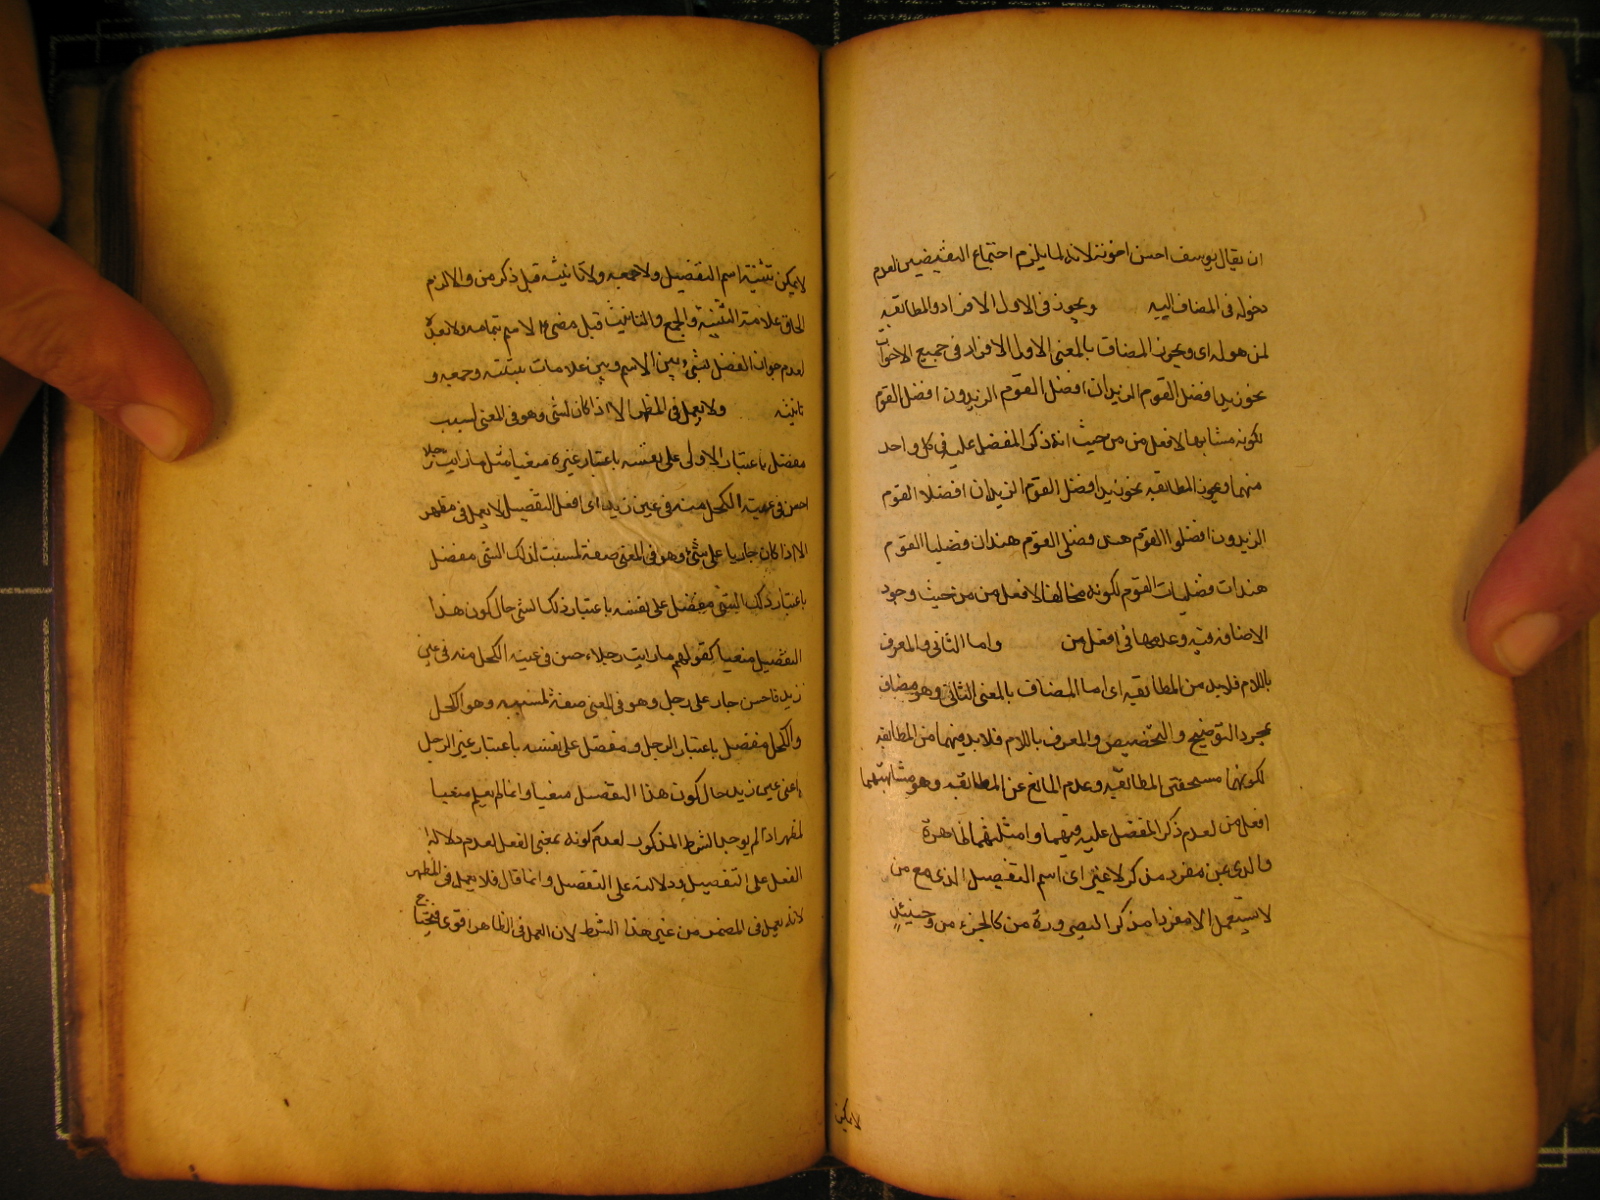 ان يقال يوسف احسن اخوته لانه لما يلزم اجتماع النقيضين لعدم
دخوله فى المضاف اليه ويجوز فى الاول الافراد والمطابقه
لمن هو له اى ويجوز المضاف بالمعنى الاول الافراد فى جميع الاخوات
نحو زيد افضل القوم الزيدان افضل القوم الزيدون افضل القوم
لكونه مشابها لافعل من من حيث انه ذكر المفضل عليه فى كل واحد
منهما ويجوز المطابقه نحو زيد افضل القوم الزيدان افضلا القوم
الزيدون افضلوا القوم هند فضلى القوم هندان فضليا القوم
هندات فضليات القوم لكونه مخالفا لافعل من من حيث وجود
الاضافه فيه وعدمها فى افعل من واما الثانى والمعرف
باللام فلا بد من المطابقه اى اما المضاف بالمعنى الثانى وهو مضاف
بمجرد التوضيح والتخصيص والمعرف باللام فلا بد فيهما من المطابقه
لكونهما مستحقى المطابقه وعدم المانع عن المطابقه وهو مشابهتهما
افعل من لعدم ذكر المفضل عليه فيهما وامثلتهما ظاهرة
والذى بمن مفرد مذكر لا غير اى اسم التفضيل الذى مع من
لا يستعمل الا مفردا مذكرا لصيرورة من كالجزء من وحينئذ
لا يمكن
لا يمكن تثنية اسم التفضيل ولا جمعه ولا تانيثه قبل ذكر من والا لزم
الحاق علامة التثنية والجمع والتانيث قبل مضى الاسم بتمامه ولا بعده
لعدم جواز الفصل بشئ بين الاسم وبين علامات تثنيته وجمعه و
تانيثه ولا يعمل فى المظهر الا اذا كان لشئ وهو فى المعنى لسبب
مفضل باعتبار الاولى على نفسه باعتبار غيره منفيا مثل ما رايت رجلا
احسن فى عينه الكحل منه فى عين زيد اى افعل التفضيل لا يعمل فى مظهر
الا اذا كان جاريا على شئ وهو فى المعنى صفة لمسبب لذلك الشئ مفضل
باعتبار ذلك الشئ مفضل على نفسه باعتبار ذلك الشئ حال كون هذا
التفضيل منفيا كقولهم ما رايت رجلا احسن فى عينه الكحل منه فى عين
زيد فاحسن جار على رجل وهو فى المعنى صفة لمسببه وهو الكحل
والكحل مفضل باعتبار الرجل ومفضل على نفسه باعتبار غير الرجل
اعنى عين زيد حال كون هذا التفضيل منفيا وانما لم يعمل منفيا
لمظهر اذا لم يوجد الشرط المذكور لعدم كونه بمعنى الفعل لعدم دلالة
الفعل على التفضيل ودلالته على التفضيل وانما قال فلا يعمل فى المظهر
لانه يعمل فى المضمر من غير هذا الشرط لان العمل فى الظاهر اقوى فيحتاج